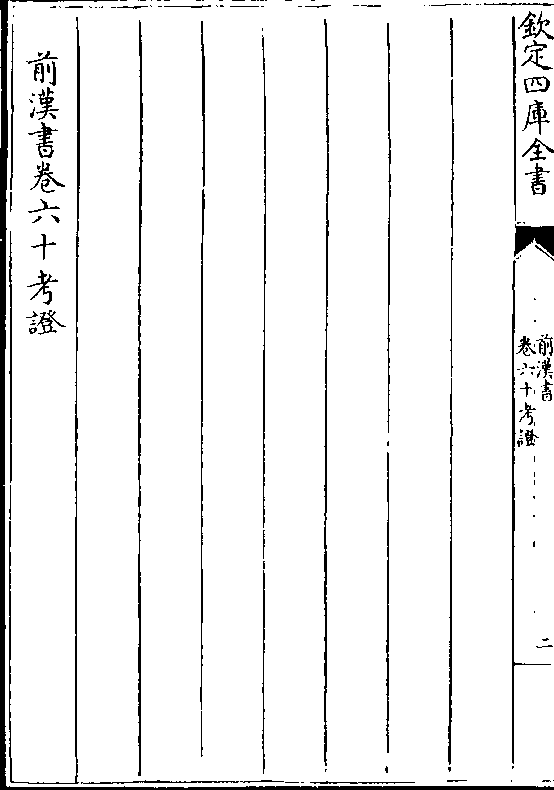 欽定四庫全書
前漢書
卷六十考證
二
前漢書卷六十考證